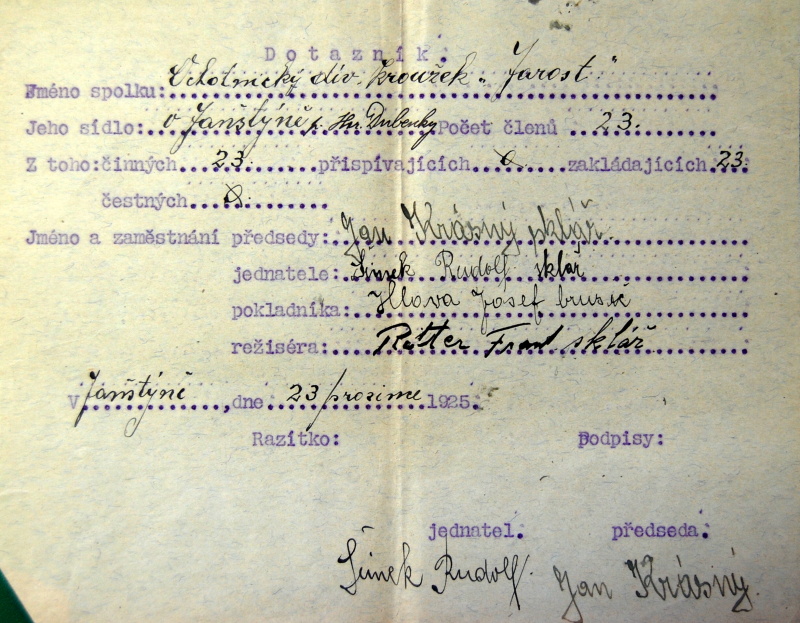 Dotazník.
Jméno spolku: Ochotnický div. kroužek „Jarost“
Jeho sídlo: v Janštýně p. Hor. Dubenky Počet členů 23.
Z toho: činných 23. přispívajících 0 zakládajících 23.
čestných 0.
Jméno a zaměstnání předsedy: Jan Krásný sklář.
jednatele: Šimek Rudolf sklář
pokladníka: Hlava Josef brusič
režiséra: Ritter Frant. sklář
V Janštýně, dne 23 prosince 1925.
Razítko: Podpisy:
jednatel. předseda.
Šimek Rudolf. Jan Krásný.